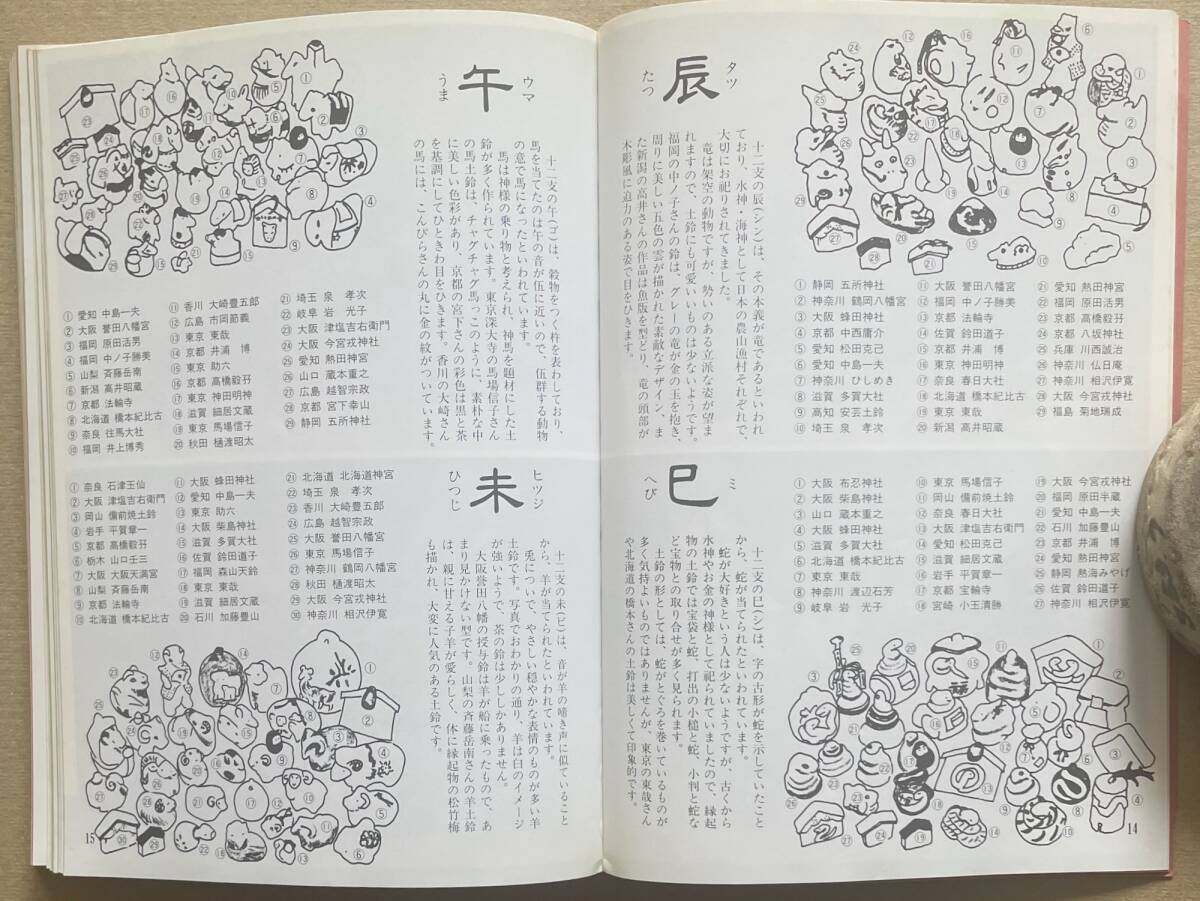 辰
タツ
たつ
十二支の辰(シン)は、その本義が竜であるといわれ
ており、水神・海神として日本の農山漁村それぞれで、
大切にお祀りされてきました。
竜は架空の動物ですが、勢いのある立派な姿が望ま
れますので、土鈴にも可愛いいものは少ないようです。
福岡の中ノ子さんの鈴は、グレーの竜が金の玉を抱き、
周りに美しい五色の雲が描かれた素敵なデザイン。ま
た新潟の高井さんの作品は魚版を型どり、竜の頭部が
木彫風に迫力のある姿で目をひきます。
① 静岡 五所神社
② 神奈川 鶴岡八幡宮
③ 大阪 蜂田神社
④ 京都 中西庸介
⑤ 愛知 松田克己
⑥ 愛知 中島一夫
⑦ 神奈川 ひしめき
⑧ 滋賀 多賀大社
⑨ 高知 安芸土鈴
⑩ 埼玉 泉 孝次
⑪ 大阪 誉田八幡宮
⑫ 福岡 中ノ子勝美
⑬ 京都 法輪寺
⑭ 佐賀 鈴田道子
⑮ 京都 井浦 博
⑯ 東京 神田明神
⑰ 奈良 春日大社
⑱ 北海道 橋本紀比古
⑲ 東京 東哉
⑳ 新潟 高井昭蔵
㉑ 愛知 熱田神宮
㉒ 福岡 原田活男
㉓ 京都 高橋毅孖
㉔ 京都 八坂神社
㉕ 兵庫 川西誠治
㉖ 神奈川 仏日庵
㉗ 神奈川 相沢伊寛
㉘ 大阪 今宮戎神社
㉙ 福島 菊地瑞成
巳
ミ
へび
十二支の巳(シ)は、字の古形が蛇を示していたこと
から、蛇が当てられたといわれています。
蛇が大好きという人は少ないようですが、古くから
水神やお金の神様として祀られていましたので、縁起
物の土鈴では宝袋と蛇、打出の小槌と蛇、小判と蛇な
ど宝物との取り合せが多く見られます。
土鈴の形としては、蛇がとぐろを巻いているものが
多く気持よいものではありませんが、東京の東哉さん
や北海道の橋本さんの土鈴は美しくて印象的です。
① 大阪 布忍神社
② 大阪 柴島神社
③ 山口 蔵本重之
④ 大阪 蜂田神社
⑤ 滋賀 多賀大社
⑥ 北海道 橋本紀比古
⑦ 東京 東哉
⑧ 神奈川 渡辺石芳
⑨ 岐阜 岩 光子
⑩ 東京 馬場信子
⑪ 岡山 備前焼土鈴
⑫ 奈良 春日大社
⑬ 大阪 津塩吉右衛門
⑭ 愛知 松田克己
⑮ 滋賀 細居文蔵
⑯ 岩手 平賀章一
⑰ 京都 宝輪寺
⑱ 宮崎 小玉清勝
⑲ 大阪 今宮戎神社
⑳ 福岡 原田半蔵
㉑ 愛知 中島一夫
㉒ 石川 加藤豊山
㉓ 京都 井浦 博
㉔ 愛知 熱田神宮
㉕ 静岡 熱海みやげ
㉖ 佐賀 鈴田道子
㉗ 神奈川 相沢伊寛
14
午
ウマ
うま
十二支の午(ゴ)は、穀物をつく杵を表わしており、
馬を当てたのは午の音が伍に近いので、伍群する動物
の意で馬になったといわれています。
馬は神様の乗り物と考えられ、神馬を題材にした土
鈴が多く作られています。東京深大寺の馬場信子さん
の馬土鈴は、チャグチャグ馬っこのように、素朴な中
に美しい色彩があり、京都の宮下さんの彩色は黒と茶
を基調にしてひときわ目をひきます。香川の大崎さん
の馬には、こんぴらさんの丸に金の紋がついています。
① 愛知 中島一夫
② 大阪 誉田八幡宮
③ 福岡 原田活男
④ 福岡 中ノ子勝美
⑤ 山梨 斉藤岳南
⑥ 新潟 高井昭蔵
⑦ 京都 法輪寺
⑧ 北海道 橋本紀比古
⑨ 奈良 往馬大社
⑩ 福岡 井上博秀
⑪ 香川 大崎豊五郎
⑫ 広島 市岡節義
⑬ 東京 東哉
⑭ 京都 井浦 博
⑮ 東京 助六
⑯ 京都 高橋毅孖
⑰ 東京 神田明神
⑱ 滋賀 細居文蔵
⑲ 東京 馬場信子
⑳ 秋田 樋渡昭太
㉑ 埼玉 泉 孝次
㉒ 岐阜 岩 光子
㉓ 大阪 津塩吉右衛門
㉔ 大阪 今宮戎神社
㉕ 愛知 熱田神宮
㉖ 山口 蔵本重之
㉗ 広島 越智宗政
㉘ 京都 宮下幸山
㉙ 静岡 五所神社
未
ヒツジ
ひつじ
十二支の未(ビ)は、音が羊の啼き声に似ていること
から、羊が当てられたといわれています。
兎について、やさしい穏やかな表情のものが多い羊
土鈴です。写真でおわかりの通り、羊は白のイメージ
が強いようで、茶の鈴は少ししかありません。
大阪誉田八幡の授与鈴は羊が船に乗ったもので、あ
まり見かけない型です。山梨の斉藤岳南さんの羊土鈴
は、親に甘える子羊が愛らしく、体に縁起物の松竹梅
も描かれ、大変に人気のある土鈴です。
① 奈良 石津王仙
② 大阪 津塩吉右衛門
③ 岡山 備前焼土鈴
④ 岩手 平賀章一
⑤ 京都 高橋毅孖
⑥ 栃木 山口王三
⑦ 大阪 大阪天満宮
⑧ 山梨 斉藤岳南
⑨ 京都 法輪寺
⑩ 北海道 橋本紀比古
⑪ 大阪 蜂田神社
⑫ 愛知 中島一夫
⑬ 東京 助六
⑭ 大阪 柴島神社
⑮ 滋賀 多賀大社
⑯ 佐賀 鈴田道子
⑰ 福岡 森山天鈴
⑱ 東京 東哉
⑲ 滋賀 細居文蔵
⑳ 石川 加藤豊山
㉑ 北海道 北海道神宮
㉒ 埼玉 泉 孝次
㉓ 香川 大崎豊五郎
㉔ 広島 越智宗政
㉕ 大阪 誉田八幡宮
㉖ 東京 馬場信子
㉗ 神奈川 鶴岡八幡宮
㉘ 秋田 樋渡昭太
㉙ 大阪 今宮戎神社
㉚ 神奈川 相沢伊寛
15